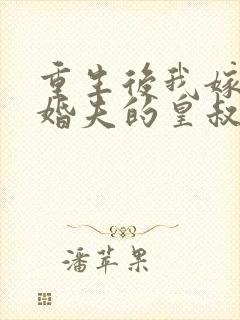 重生後我嫁
婚夫的皇叔
潘苹果